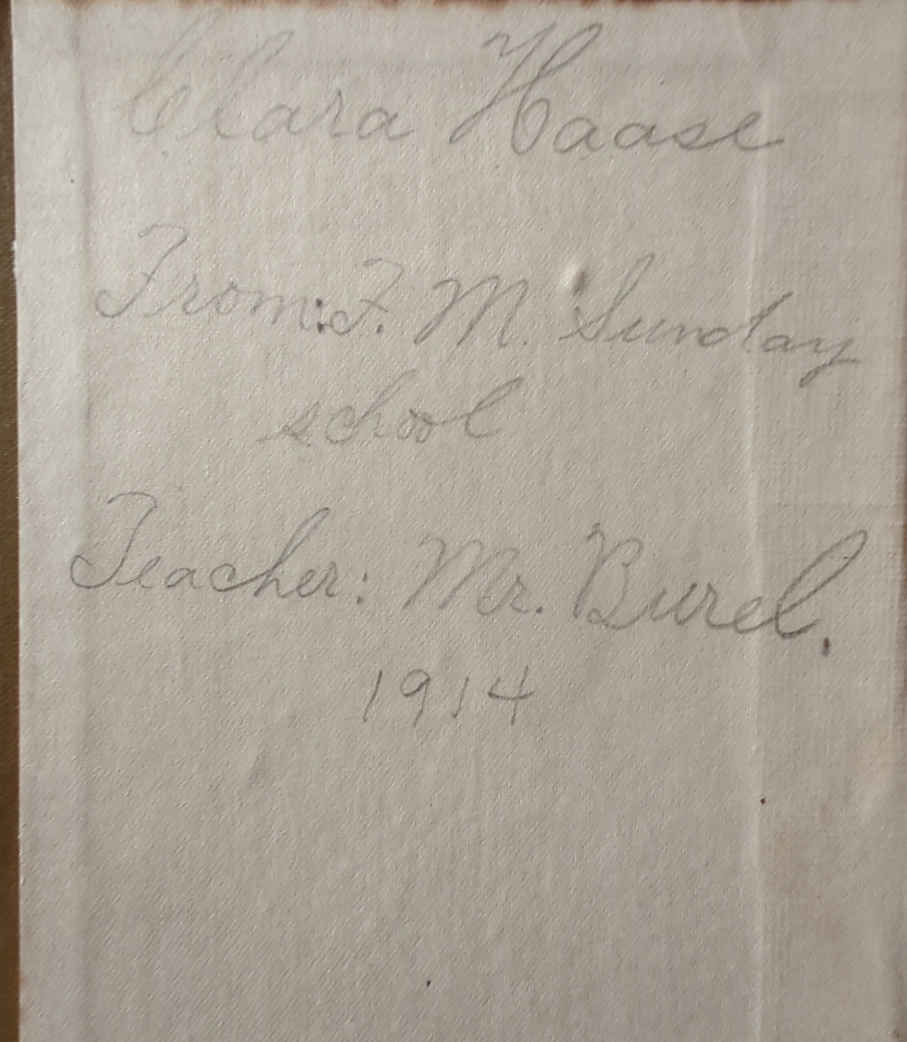 Clara Haase
From: F. M. Sunday
school
Teacher: Mr. Burel.
1914